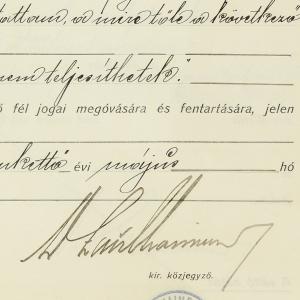 tattam, a mire tőle a következő
nem teljesíthetek."
fél jogai megóvására és fentartására, jelen
évi május hó
kir. közjegyző.